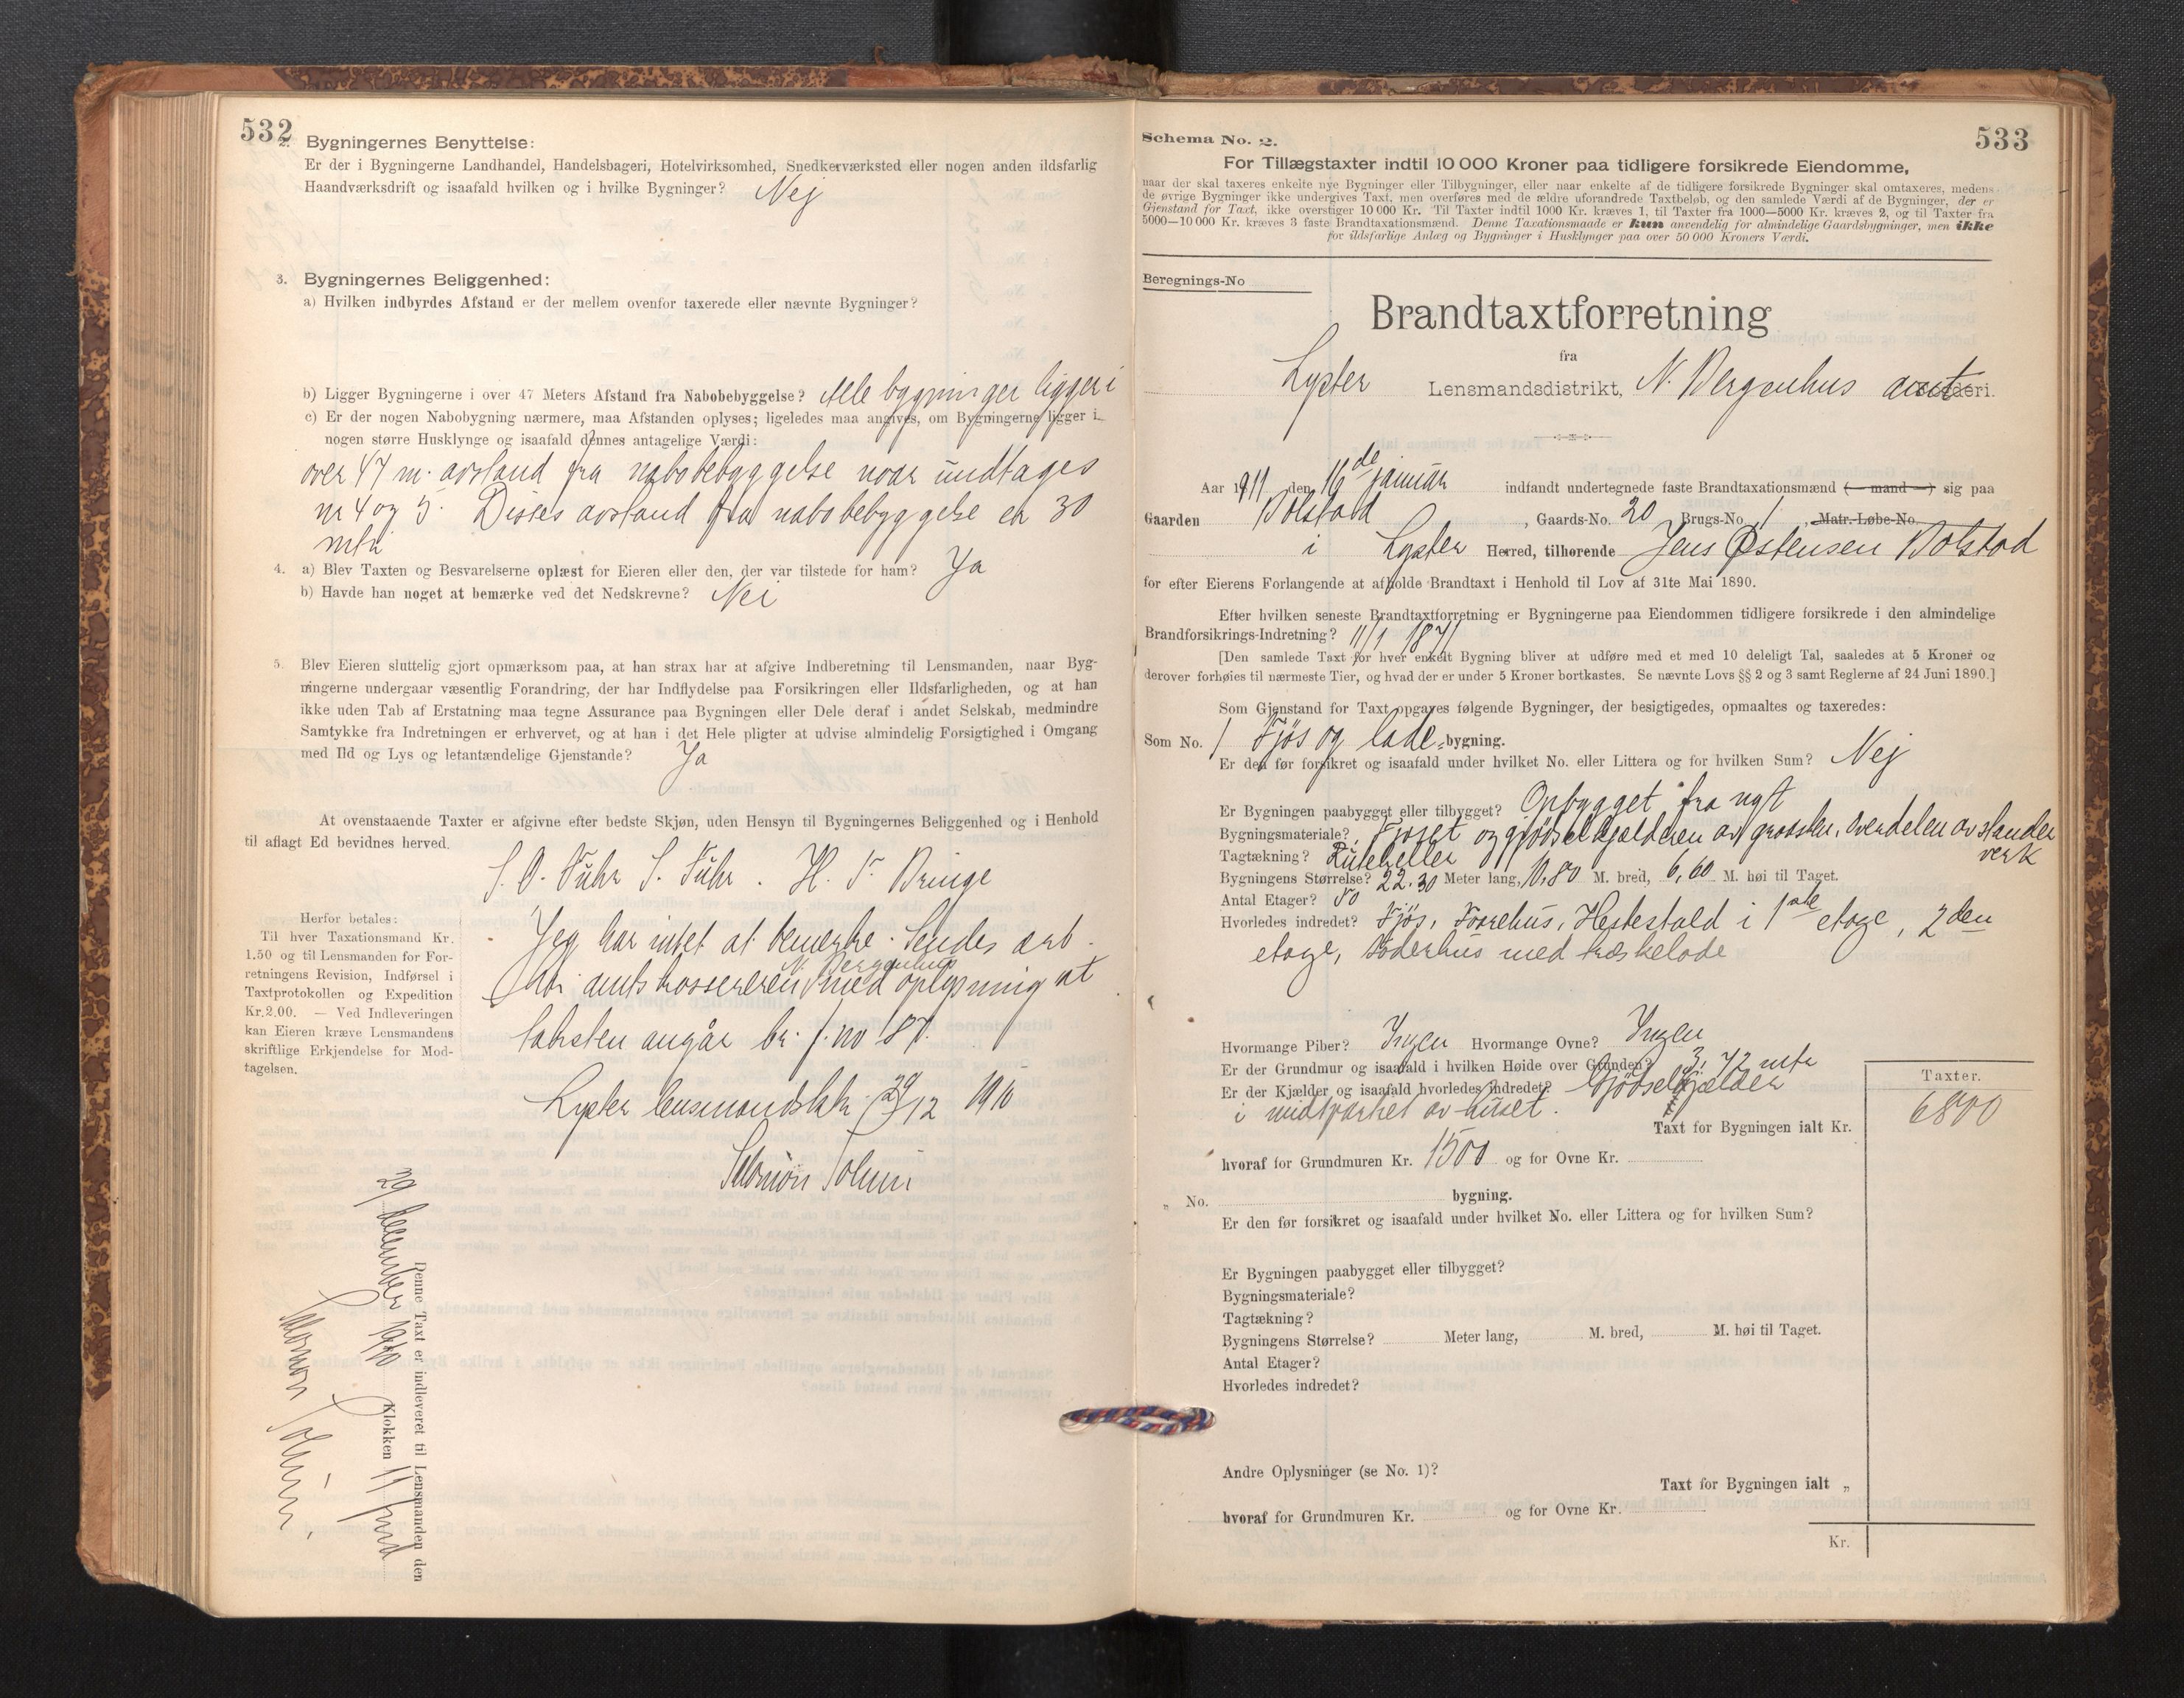 532
2. Bygningernes Benyttelse:
Er der i Bygningerne Landhandel, Handelsbageri, Hotelvirksomhed, Snedkerværksted eller nogen anden ildsfarlig
Haandværksdrift og isaafald hvilken og i hvilke Bygninger? Nej
3. Bygningernes Beliggenhed:
a) Hvilken indbyrdes Afstand er der mellem ovenfor taxerede eller nævnte Bygninger?
b) Ligger Bygningerne i over 47 Meters Afstand fra Nabobebyggelse? Alle bygninger ligger i
c) Er der nogen Nabobygning nærmere, maa Afstanden oplyses; ligeledes maa angives, om Bygningerne ligger i
nogen større Husklynge og isaafald dennes antagelige Værdi:
over 47 m. avstand fra nabobebyggelse naar undtages
nr 4 og 5. Disses avstand fra nabobebyggelse er 30
mtr
4. a) Blev Taxten og Besvarelserne oplæst for Eieren eller den, der var tilstede for ham? Ja
b) Havde han noget at bemærke ved det Nedskrevne? Nei
5. Blev Eieren sluttelig gjort opmærksom paa, at han strax har at afgive Indberetning til Lensmanden, naar Byg-
ningerne undergaar væsentlig Forandring, der har Indflydelse paa Forsikringen eller Ildsfarligheden, og at han
ikke uden Tab af Erstatning maa tegne Assurance paa Bygningen eller Dele deraf i andet Selskab, medmindre
Samtykke fra Indretningen er erhvervet, og at han i det Hele pligter at udvise almindelig Forsigtighed i Omgang
med Ild og Lys og letantændelige Gjenstande? Ja
At ovenstaaende Taxter er afgivne efter bedste Skjøn, uden Hensyn til Bygningernes Beliggenhed og i Henhold
til aflagt Ed bevidnes herved.
S. O. Fuhr S. Fuhr. H. T. Bringe
Herfor betales:
Til hver Taxationsmand Kr.
1.50 og til Lensmanden for For-
retningens Revision, Indførsel i
Taxtprotokollen og Expedition
Kr. 2.00. — Ved Indleveringen
kan Eieren kræve Lensmandens
skriftlige Erkjendelse for Mod-
tagelsen.
Jeg har intet at bemerke. Sendes ærb.
N. Bergenhus
hr. amtskassereren med oplysning at
taksten angår br. f. no 87.
Lyster lensmandsktr 29/12 1910
Salomon Solvin
Denne Taxt er indleveret til Lensmanden den
29 december 1910 Klokken 11 fmd
Salomon Solvin.
533
Schema No. 2.
For Tillægstaxter indtil 10 000 Kroner paa tidligere forsikrede Eiendomme,
naar der skal taxeres enkelte nye Bygninger eller Tilbygninger, eller naar enkelte af de tidligere forsikrede Bygninger skal omtaxeres, medens
de øvrige Bygninger ikke undergives Taxt, men overføres med de ældre uforandrede Taxtbeløb, og den samlede Værdi af de Bygninger, der er
Gjenstand for Taxt, ikke overstiger 10 000 Kr. Til Taxter indtil 1000 Kr. kræves 1, til Taxter fra 1000—5000 Kr. kræves 2, og til Taxter fra
5000—10 000 Kr. kræves 3 faste Brandtaxationsmænd. Denne Taxationsmaade er kun anvendelig for almindelige Gaardsbygninger, men ikke
for ildsfarlige Anlæg og Bygninger i Husklynger paa over 50 000 Kroners Værdi.
Beregnings-No
Brandtaxtforretning
fra
Lyster Lensmandsdistrikt, N. Bergenhus amt
Aar 1911, den 16de januar indfandt undertegnede faste Brandtaxationsmænd (— mand —) sig paa
Gaarden Bolstad, Gaards-No. 20 Brugs-No. 1, Matr.-Løbe-No.
i Lyster Herred, tilhørende Jens Østensen Bolstad
for efter Eierens Forlangende at afholde Brandtaxt i Henhold til Lov af 31te Mai 1890.
Efter hvilken seneste Brandtaxtforretning er Bygningerne paa Eiendommen tidligere forsikrede i den almindelige
Brandforsikrings-Indretning? 11/1 1871
[Den samlede Taxt for hver enkelt Bygning bliver at udføre med et med 10 deleligt Tal, saaledes at 5 Kroner og
derover forhøies til nærmeste Tier, og hvad der er under 5 Kroner bortkastes. Se nævnte Lovs §§ 2 og 3 samt Reglerne af 24 Juni 1890.]
Som Gjenstand for Taxt opgaves følgende Bygninger, der besigtigedes, opmaaltes og taxeredes:
Som No. 1 Fjøs og lade-bygning.
Er den før forsikret og isaafald under hvilket No. eller Littera og for hvilken Sum? Nej
Er Bygningen paabygget eller tilbygget? Opbygget fra nyt
Bygningsmateriale? Fjøset og gjødselkjelderen av graasten, overdelen av stander
verk
Tagtækning? Ruteheller
Bygningens Størrelse? 22.30 Meter lang, 10,80 M. bred, 6,60 M. høi til Taget.
Antal Etager? To
Hvorledes indredet? Fjøs, Faarehus, Hestestald i 1ste etage, 2den
etage, Foderhus med træskelade
Hvormange Piber? Ingen Hvormange Ovne? Ingen
Er der Grundmur og isaafald i hvilken Høide over Grunden? 3,72 mtr
Er der Kjælder og isaafald hvorledes indredet? Gjødselkjælder
i midtpartiet av huset.
Taxter.
Taxt for Bygningen ialt Kr. 6800
hvoraf for Grundmuren Kr. 1500 og for Ovne Kr.
„ No. bygning.
Er den før forsikret og isaafald under hvilket No. eller Littera og for hvilken Sum?
Er Bygningen paabygget eller tilbygget?
Bygningsmateriale?
Tagtækning?
Bygningens Størrelse? Meter lang, M. bred, M. høi til Taget.
Antal Etager?
Hvorledes indredet?
Andre Oplysninger (se No. 1)?
Taxt for Bygningen ialt „
hvoraf for Grundmuren Kr. og for Ovne Kr.
Kr.